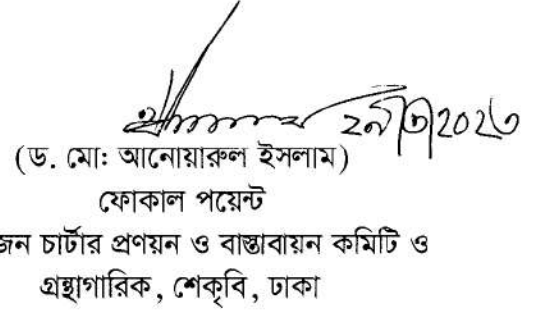 ২৯|৩|২০২৩
(ড. মো: আনোয়ারুল ইসলাম)
ফোকাল পয়েন্ট
জন চার্টার প্রণয়ন ও বাস্তাবায়ন কমিটি ও
গ্রন্থাগারিক, শেকৃবি, ঢাকা